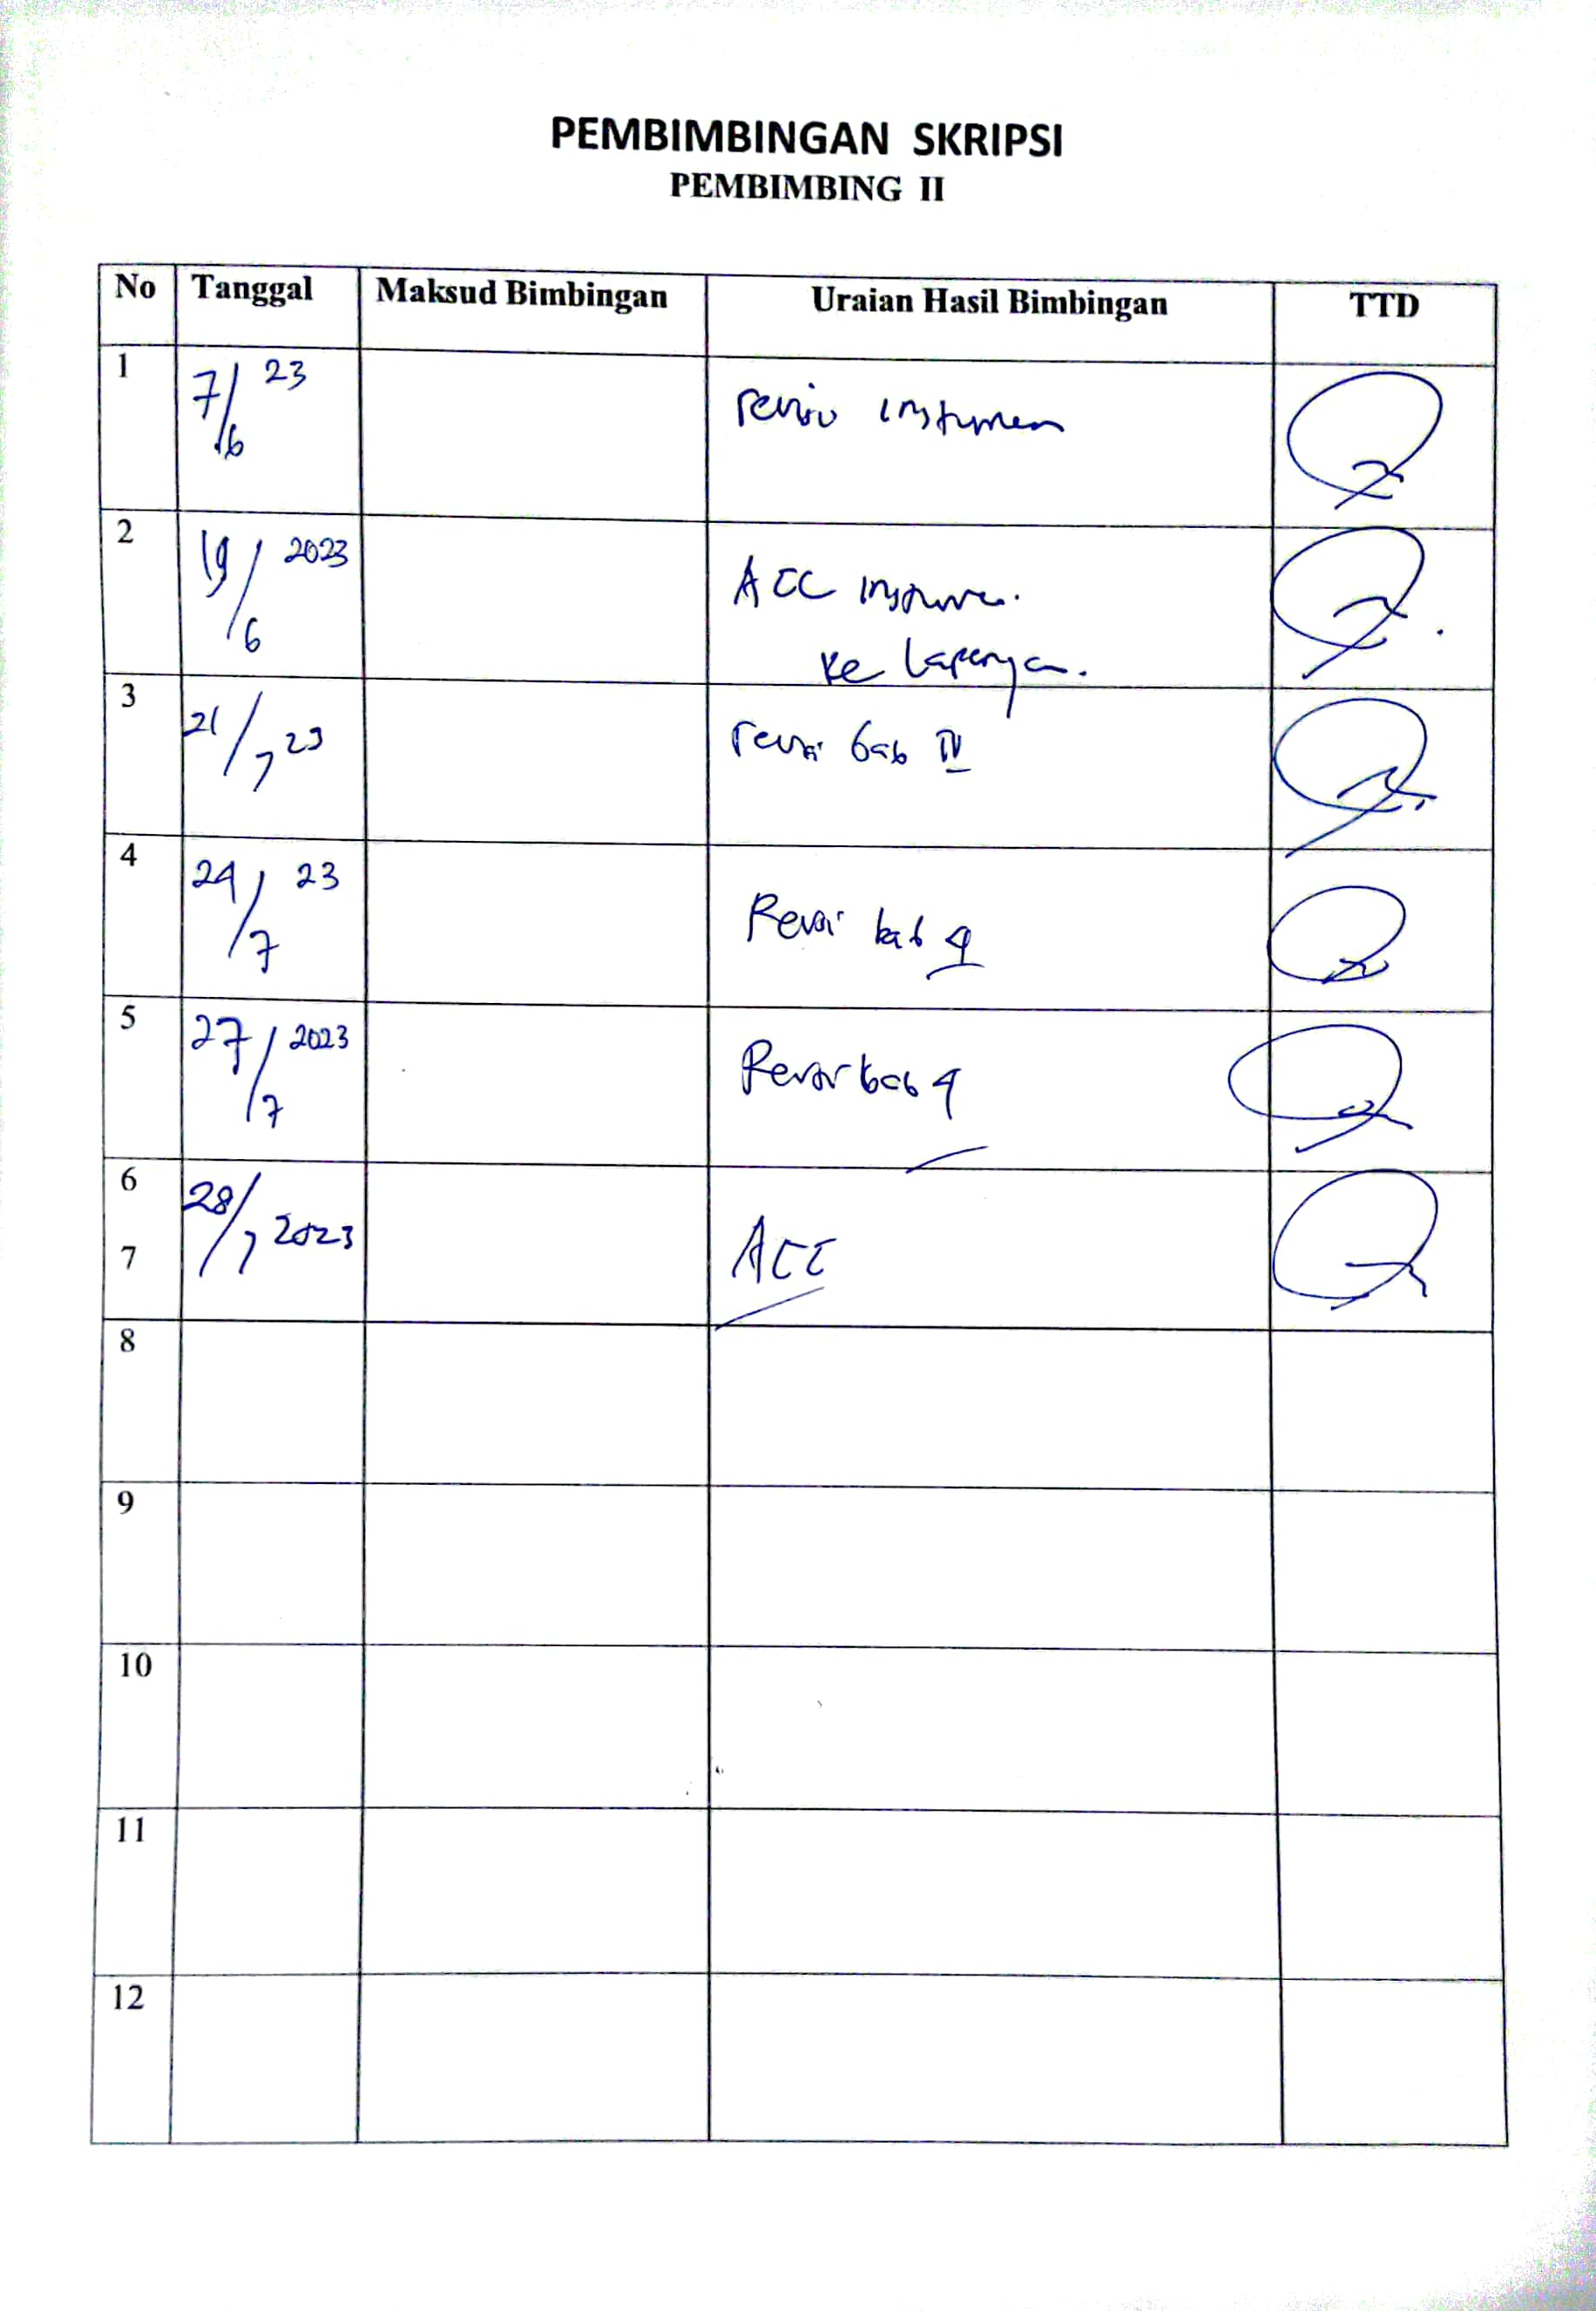 PEMBIMBINGAN SKRIPSI
PEMBIMBING II
No Tanggal Maksud Bimbingan Uraian Hasil Bimbingan TTD
1 7/6 23 revisi instrumen
2 19/6 2023 ACC instrumen.
ke lapangan.
3 21/7 23 revisi bab IV
4 24/7 23 Revisi bab 4
5 27/7 2023 Revisi bab 4
6 28/7 2023 ACC
7
8
9
10
11
12